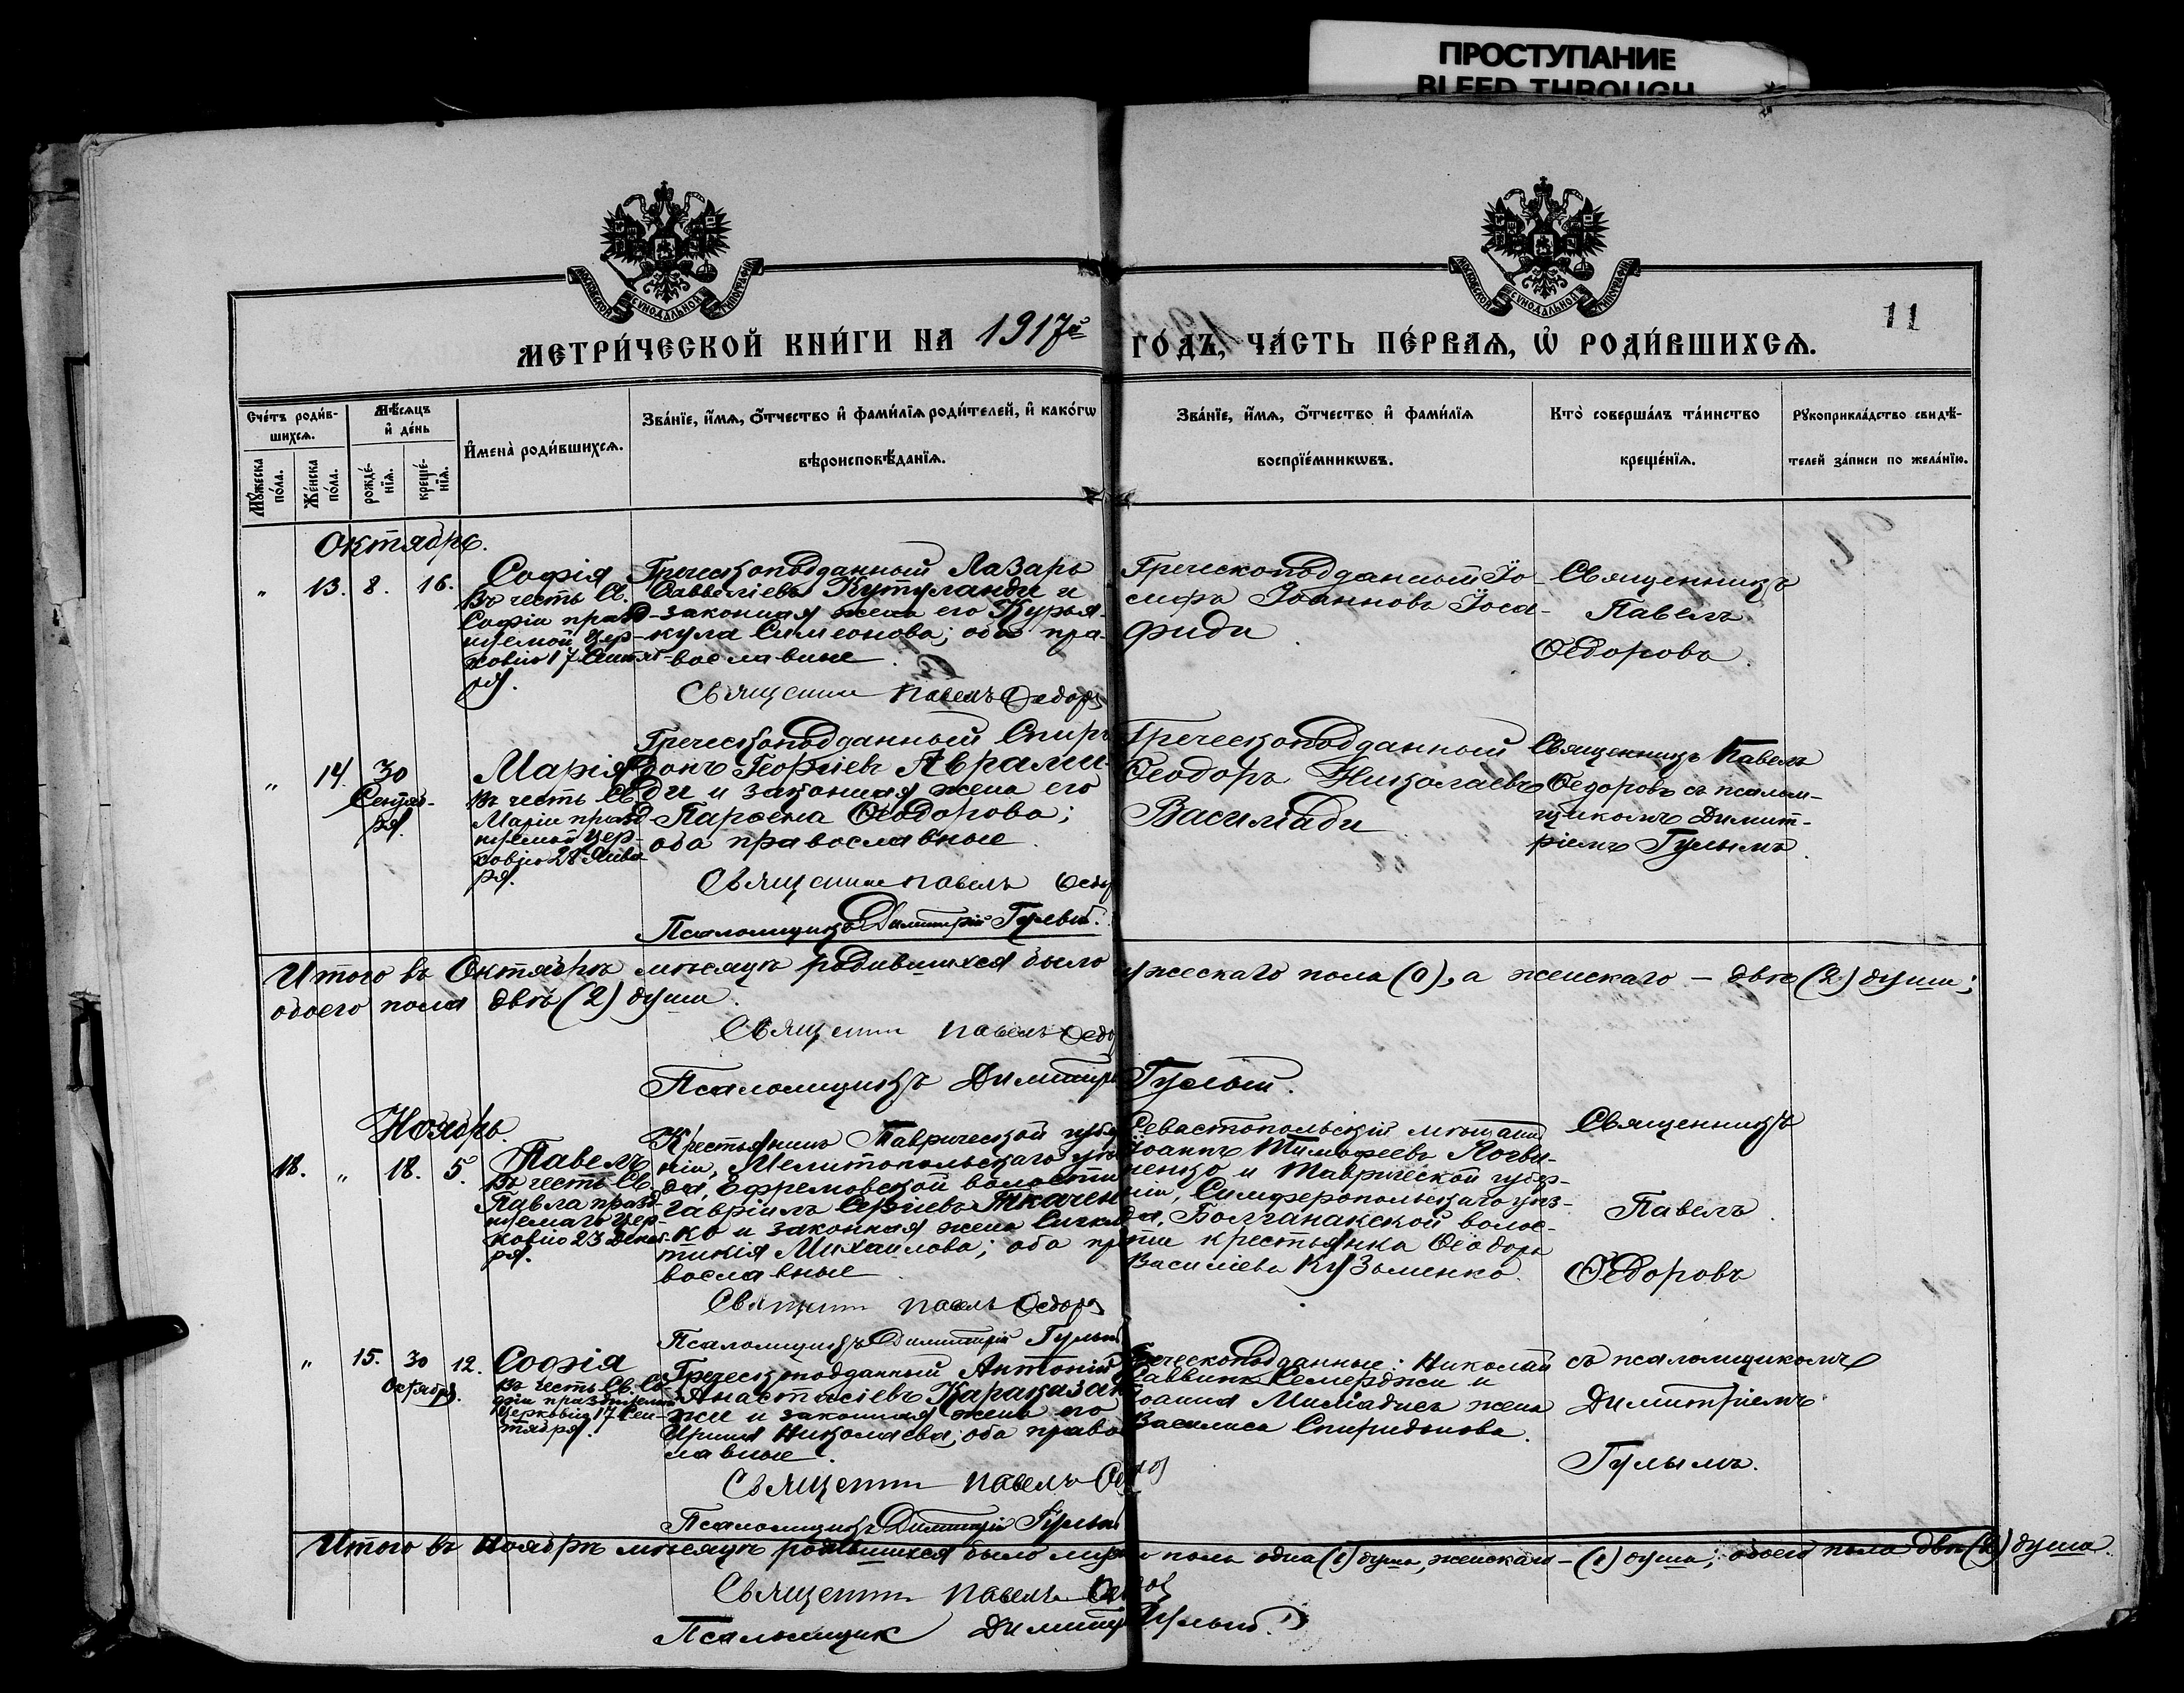 ПРОСТУПАНИЕ
BLEED THROUGH
МОСКОВСКОЙ СѴНОДАЛЬНОЙ ТИПОГРАФІИ
МОСКОВСКОЙ СѴНОДАЛЬНОЙ ТИПОГРАФІИ
11
МЕТРИ́ЧЕСКОЙ КНИ́ГИ НА 1917й ГО́ДЪ, ЧА́СТЬ ПЕ́РВАѦ, Ѡ РОДИ́ВШИХСѦ.
Сче́тъ роди́в-
шихсѧ.
Мꙋ́жеска по́ла.
Же́нска по́ла.
Мѣ́сѧцъ и де́нь
рожде́-нїѧ.
креще́-нїѧ.
И҆мена̀ роди́вшихсѧ.
Зва́нїе, и҆́мѧ, ѻ҆́тчество и҆ фами́лїѧ роди́телей, и҆ како́гѡ
вѣроисповѣ́данїѧ.
Зва́нїе, и҆́мѧ, ѻ҆́тчество и҆ фами́лїѧ
воспрїе́мникѡвъ.
Кто̀ соверша́лъ та́инство
креще́нїѧ.
Рꙋкоприкла́дство свидѣ́-
телей за́писи по жела́нїю.
Октябрь.
" 13. 8. 16.
Софія
Въ честь Св.
Софіи празд-
нуемой Цер-
ковію 17 Сентяб-
ря.
Греческоподданный Лазарь
Савельевъ Кутуланди и
законная жена его Курья-
кула Симеонова; оба пра-
вославные.
Священник Павелъ Федоров
Греческоподданный Іо-
сифъ Іоанновъ Іоса-
фиди
Священникъ
Павелъ
Ѳедоровъ.
" 14. 30
Сентяб-
ря.
Марія
Въ честь Св.
Маріи празд-
нуемой Цер-
ковію 28 Янва-
ря.
Греческоподданный Спири
донъ Георгіевъ Аврами-
ди и законная жена его
Парѳена Ѳеодорова;
оба православные.
Священник Павелъ Федо
Псаломщикъ Димитрій Гулый.
Греческоподданный
Ѳеодоръ Николаевъ
Василіади
Священникъ Павелъ
Ѳедоровъ съ псалом-
щикомъ Димит-
ріемъ Гулымъ.
Итого въ Октябрѣ мѣсяцѣ родившихся было мужескаго пола (0), а женскаго — двѣ (2) души;
обоего пола двѣ (2) души.
Священник Павелъ Федо
Псаломщикъ Димитрій Гулый.
Ноябрь.
18. " 18. 5.
Павелъ
Въ честь Св.
Павла празд-
нуемаго Цер-
ковію 23 Декаб-
ря.
Крестьянинъ Таврической губер
ніи, Мелитопольскаго уѣз-
да, Ефремовской волости
Гавріилъ Сергіевъ Ткачен
ко и законная жена Синкли
тикія Михаилова; оба пра
вославные.
Священник Павелъ Федоров
Псаломщикъ Димитрій Гулый
Севастопольскій мѣщанин
Іоаннъ Тимофеевъ Логви-
ненко и Таврической губер-
ніи, Симферопольскаго уѣз-
да, Болганакской волос-
ти крестьянка Ѳеодора
Василіева Кузьменко.
Священникъ
Павелъ
Ѳедоровъ
" 15. 30 Октября. 12.
Софія
Въ честь Св. Со-
фіи празднуемой
Церковію 17 Сен-
тября.
Греческоподданный Антоній
Анастасіевъ Караказан
жи и законная жена его
Ирина Николаева; оба право
лавные.
Священник Павелъ Федоров
Псаломщикъ Димитрій Гулый
Греческоподданные: Николай
Саввинъ Семерджи и
Іоанна Миліадиса жена
Василиса Спиридонова.
съ псаломщикомъ
Димитріемъ
Гулымъ.
Итого въ Ноябрѣ мѣсяцѣ родившихся было мужеска пола одна (1) душа, женскаго — (1) душа; обоего пола двѣ (2) души.
Священник Павелъ Федоров
Псаломщик Димитрій Гулый.